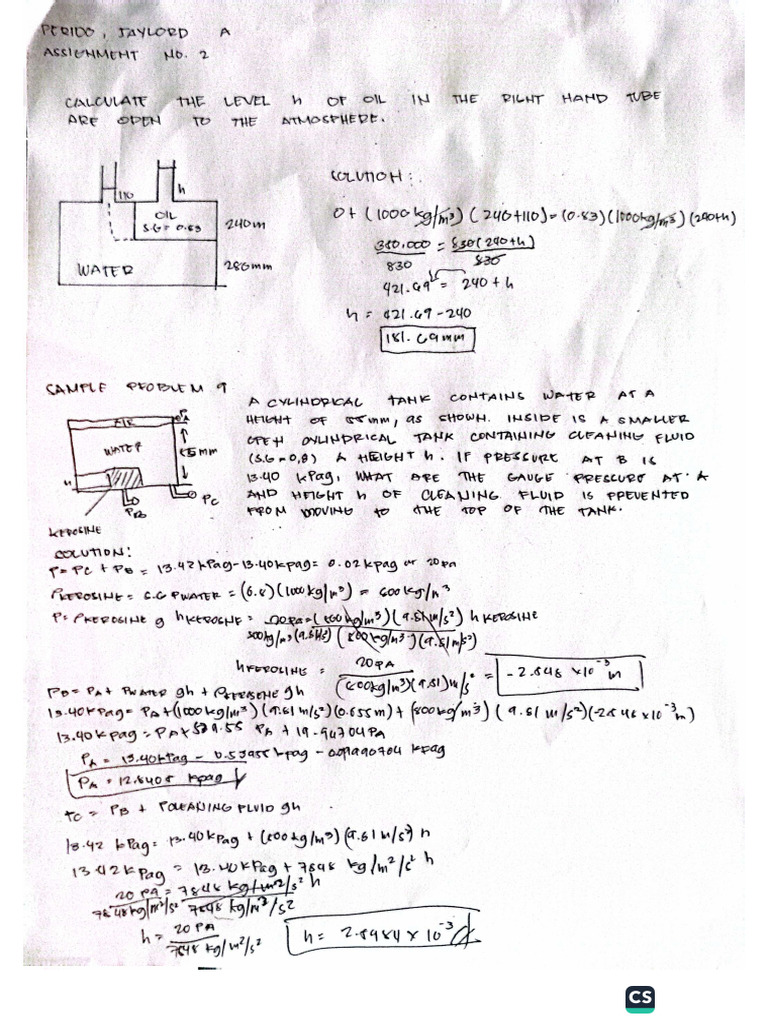 PERIDO, JAYLORD A
ASSIGNMENT NO. 2
CALCULATE THE LEVEL h OF OIL IN THE RIGHT HAND TUBE
ARE OPEN TO THE ATMOSPHERE.
110
h
OIL
S.G = 0.83
240m
WATER
280mm
SOLUTION:
0 + (1000 kg/m³) (240+110) = (0.83) (1000 kg/m³) (240+h)
350,000 = 830 (240+h)
830 830
421.69 = 240 + h
h = 421.69 - 240
181.69 mm
SAMPLE PROBLEM 9
AIR
PA
WATER
55 mm
h
PB
PC
KEROSINE
A CYLINDRICAL TANK CONTAINS WATER AT A
HEIGHT OF 55mm, AS SHOWN. INSIDE IS A SMALLER
OPEN CYLINDRICAL TANK CONTAINING CLEANING FLUID
(S.G = 0,8) A HEIGHT h. IF PRESSURE AT B IS
13.40 kPag, WHAT ARE THE GAUGE PRESSURE AT A
AND HEIGHT h OF CLEANING FLUID IS PREVENTED
FROM MOVING TO THE TOP OF THE TANK.
SOLUTION:
P = PC + PB = 13.42 kPag - 13.40 kpag = 0.02 kpag or 20 pa
PKEROSINE = S.G PWATER = (0.8) (1000 kg/m³) = 800 kg/m³
P = PKEROSINE g hKEROSINE = 20PA = (800 kg/m³) (9.81 m/s²) h KEROSINE
800 kg/m³ (9.81 m/s²) (800 kg/m³) (9.81 m/s²)
hKEROSINE = 20 PA = -2.548 × 10⁻³ m
(800 kg/m³) (9.81) m/s²
PB = PA + PWATER gh + PKEROSENE gh
13.40 kPag = PA + (1000 kg/m³) (9.81 m/s²) (0.055m) + (800 kg/m³) (9.81 m/s²) (-2.548 × 10⁻³ m)
13.40 kPag = PA + 539.55 PA + 19.99704 PA
PA = 13.40 kPag - 0.53955 kpag - 0.01990704 kPag
PA = 12.8405 kpag
PC = PB + PCLEANING FLUID gh
13.42 kPag = 13.40 kPag + (800 kg/m³) (9.81 m/s²) h
13.42 kPag = 13.40 kPag + 7848 kg/m²/s² h
20 PA = 7848 kg/m²/s² h
7848 kg/m²/s² 7848 kg/m²/s²
h = 20 PA
7848 kg/m²/s²
h = 2.5484 × 10⁻³
CS